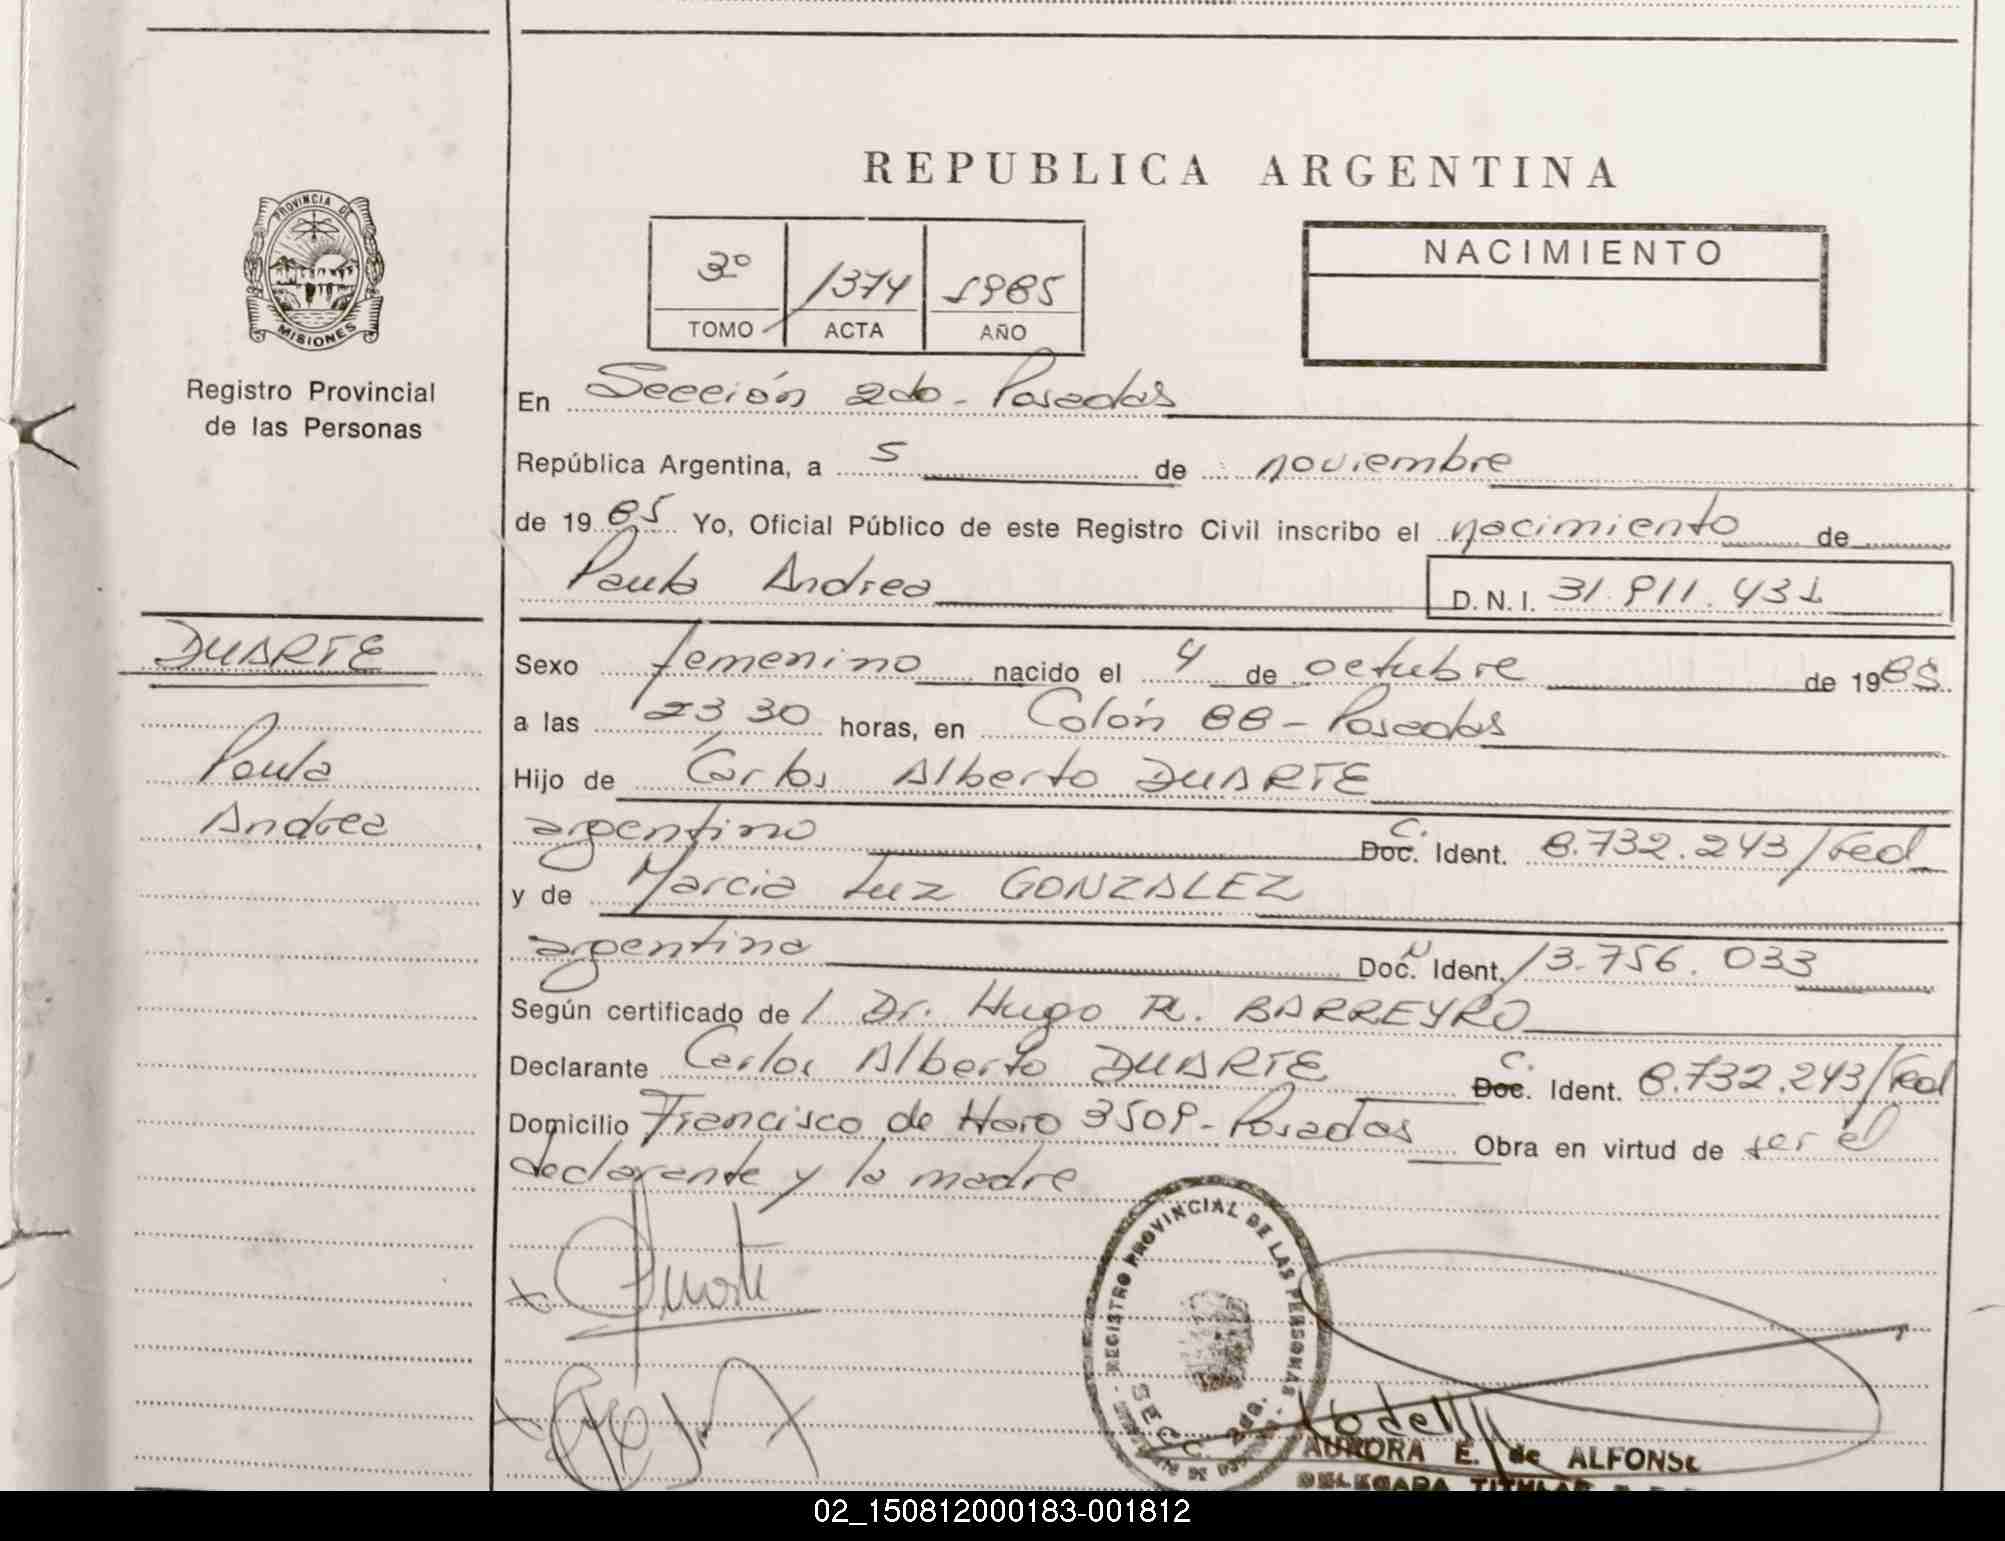 REPUBLICA ARGENTINA
PROVINCIA DE MISIONES
Registro Provincial
de las Personas
3º 1374 1985
TOMO ACTA AÑO
NACIMIENTO
En Sección 2do - Posadas
República Argentina, a 5 de noviembre
de 1985 Yo, Oficial Público de este Registro Civil inscribo el nacimiento de
Paula Andrea D.N.I. 31.911.431
DUARTE
Paula
Andrea
Sexo femenino nacido el 4 de octubre de 1985
a las 23,30 horas, en Colón 88 - Posadas
Hijo de Carlos Alberto DUARTE
argentino C. Doc. Ident. 8.732.243/Fed
y de Marcia Luz GONZALEZ
argentina Doc. Ident. 13.756.033
Según certificado de l Dr. Hugo R. BARREYRO
Declarante Carlos Alberto DUARTE C. Doc. Ident. 8.732.243/Fed
Domicilio Francisco de Haro 3509 - Posadas Obra en virtud de ser el
declarante y la madre
x Duarte
REGISTRO PROVINCIAL DE LAS PERSONAS
SECC. 2da.
AURORA E. de ALFONSO
DELEGADA TITULAR
02_150812000183-001812